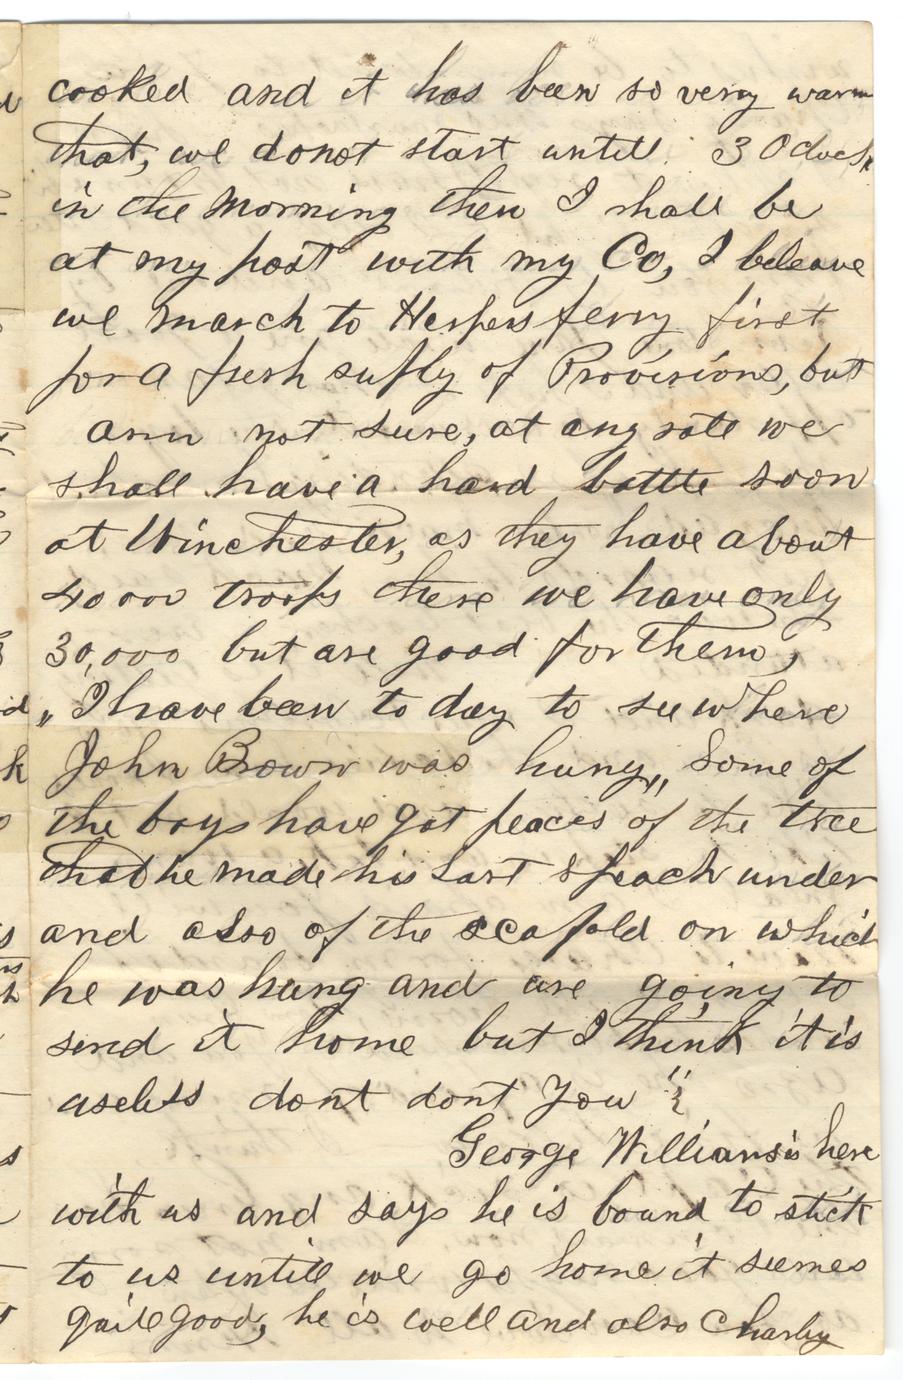 cooked and it has been so very warm
that, we donot start until 3 Oclock
in the Morning then I shall be
at my post with my Co, I beleave
we march to Herpers ferry first
for a fresh suply of Provisions, but
am not sure, at any rate we
shall have a hard battle soon
at Winchester, as they have about
40000 troops there we have only
30,000 but are good for them,
„I have been to day to see where
John Brown was hung„ Some of
the boys have got peaces of the tree
that he made his Last Speach under
and also of the scafold on which
he was hung and are going to
send it home but I think it is
useless dont dont You
George Williams is here
with us and says he is bound to stick
to us untill we go home it seemes
quite good, he is well and also Charly